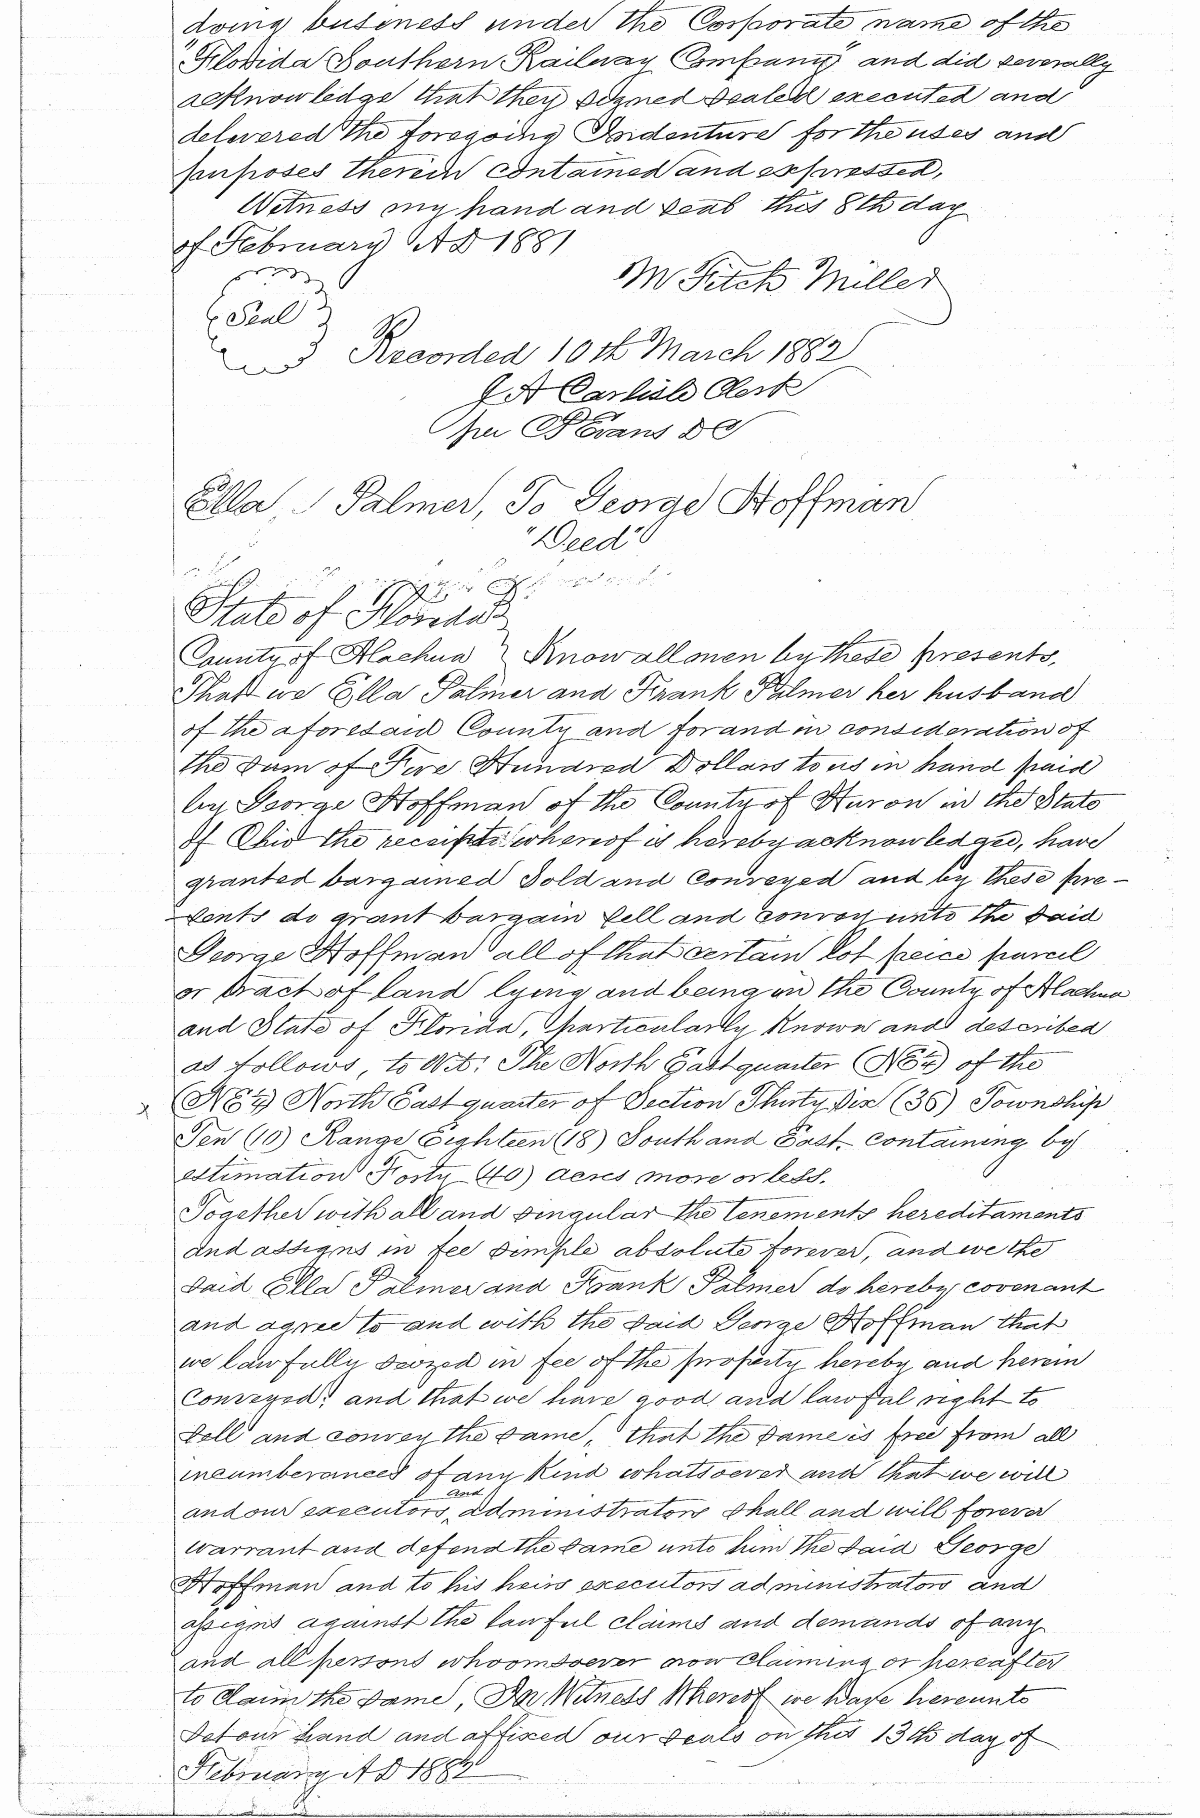 doing business under the Corporate name of the
"Florida Southern Railway Company" and did severally
acknowledge that they signed sealed executed and
delivered the foregoing Indenture for the uses and
purposes therein contained and expressed,
Witness my hand and seal this 8th day
of February AD 1881
M Fitch Miller
Seal
Recorded 10th March 1882
J A Carlisle Clerk
per Evans DC
Ella Palmer, To George Hoffman
"Deed"
State of Florida
County of Alachua } Know all men by these presents,
That we Ella Palmer and Frank Palmer her husband
of the aforesaid County and for and in consideration of
the sum of Five Hundred Dollars to us in hand paid
by George Hoffman of the County of Huron in the State
of Ohio the receipt whereof is hereby acknowledged, have
granted bargained Sold and Conveyed and by these pre-
sents do grant bargain sell and convey unto the said
George Hoffman all of that certain lot peice parcel
or tract of land lying and being in the County of Alachua
and State of Florida, particularly Known and described
as follows, to Wit: The North East quarter (NE¼) of the
x (NE¼) North East quarter of Section Thirty Six (36) Township
Ten (10) Range Eighteen (18) South and East, containing by
estimation Forty (40) acres more or less.
Together with all and singular the tenements hereditaments
and assigns in fee simple absolute forever, and we the
said Ella Palmer and Frank Palmer do hereby covenant
and agree to and with the said George Hoffman that
we lawfully siezed in fee of the property hereby and herein
Conveyed; and that we have good and lawful right to
sell and convey the same, that the same is free from all
incumberances of any Kind whatsoever and that we will
and our executors, and administrators shall and will forever
warrant and defend the same unto him the said George
Hoffman and to his heirs executors administrators and
assigns against the lawful claims and demands of any
and all persons whoomsoever now Claiming or hereafter
to Claim the same, In Witness Whereof we have hereunto
set our hand and affixed our seals on this 13th day of
February AD 1882